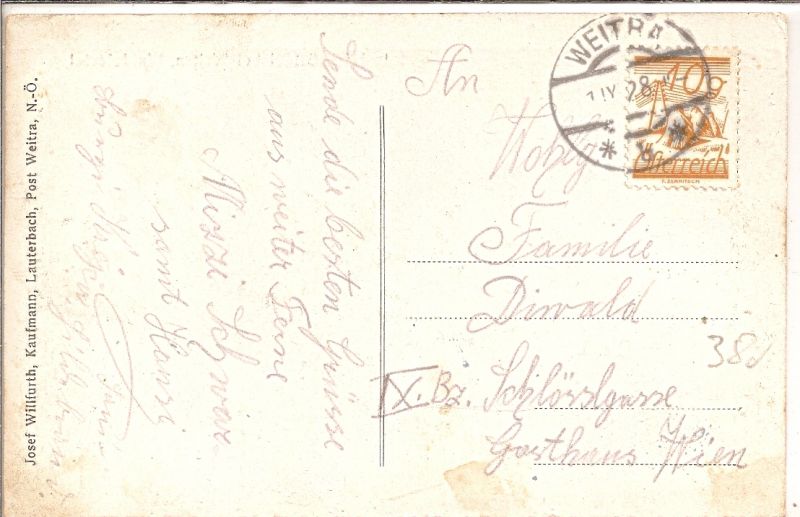 Josef Willfurth, Kaufmann, Lauterbach, Post Weitra, N.-Ö.
Sende die besten Grüsse
aus weiter Ferne
Miszi Schwarz
samt Hansi
WEITRA
1.IX.28
10g
Österreich
An
Wohlg
Familie
Diwald
IX. Bz. Schlösslgasse
Gasthaus Wien
38